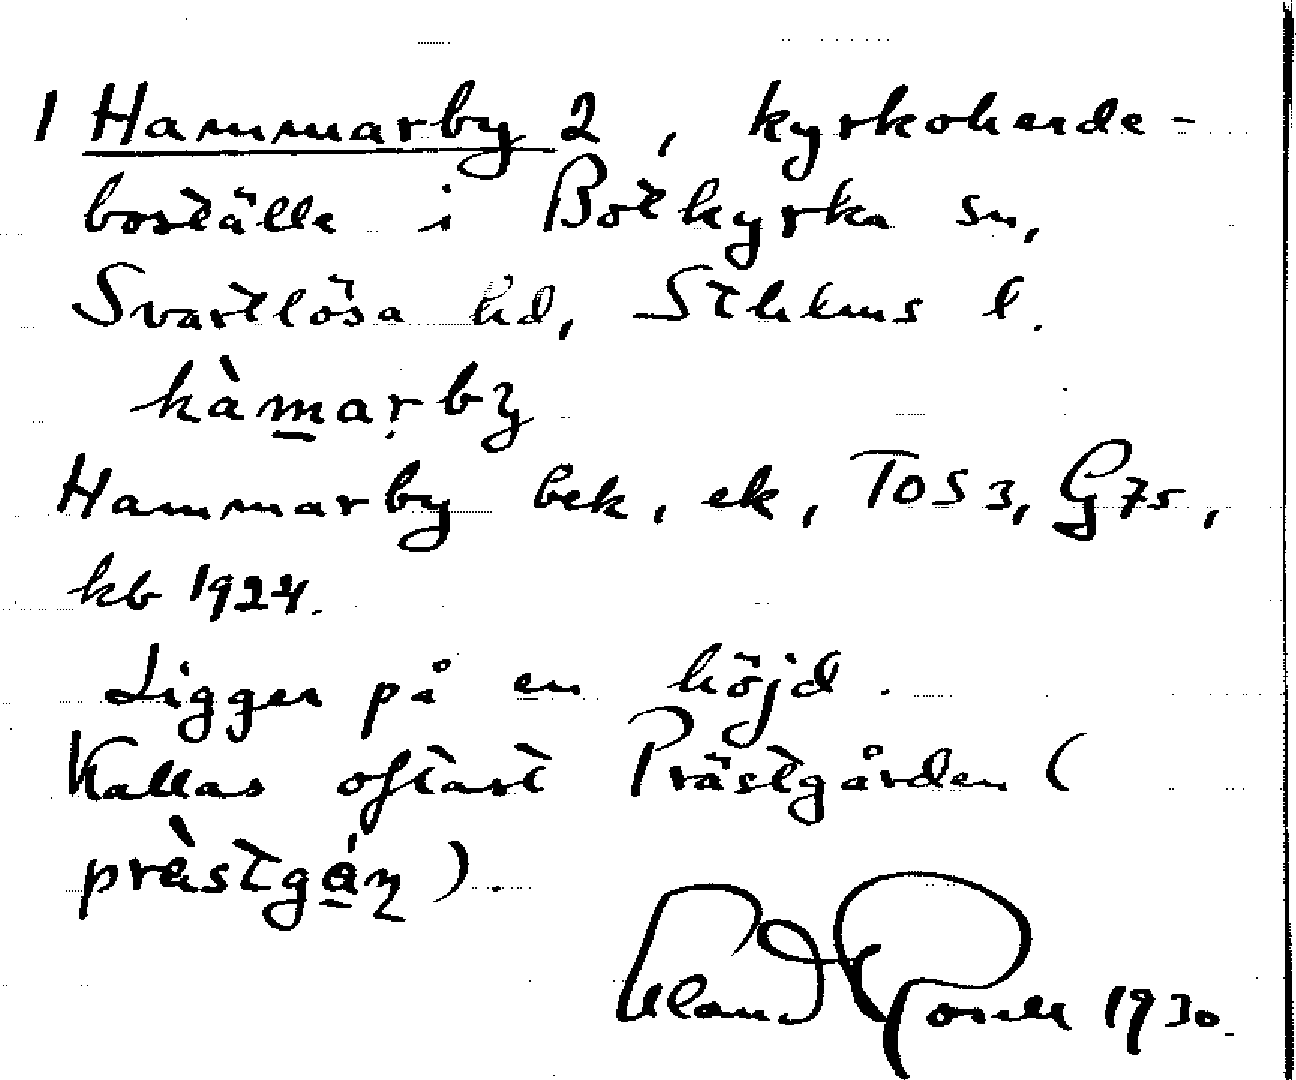 1 Hammarby 2, kyrkoherde-
boställe i Botkyrka sn,
Svartlösa hd, Sthlms l.
hàmarby
Hammarby bek, ek, TOS 3, G75,
kb 1924.
Ligger på en höjd.
Kallas oftast Prästgården (
prèstgán).
1930.